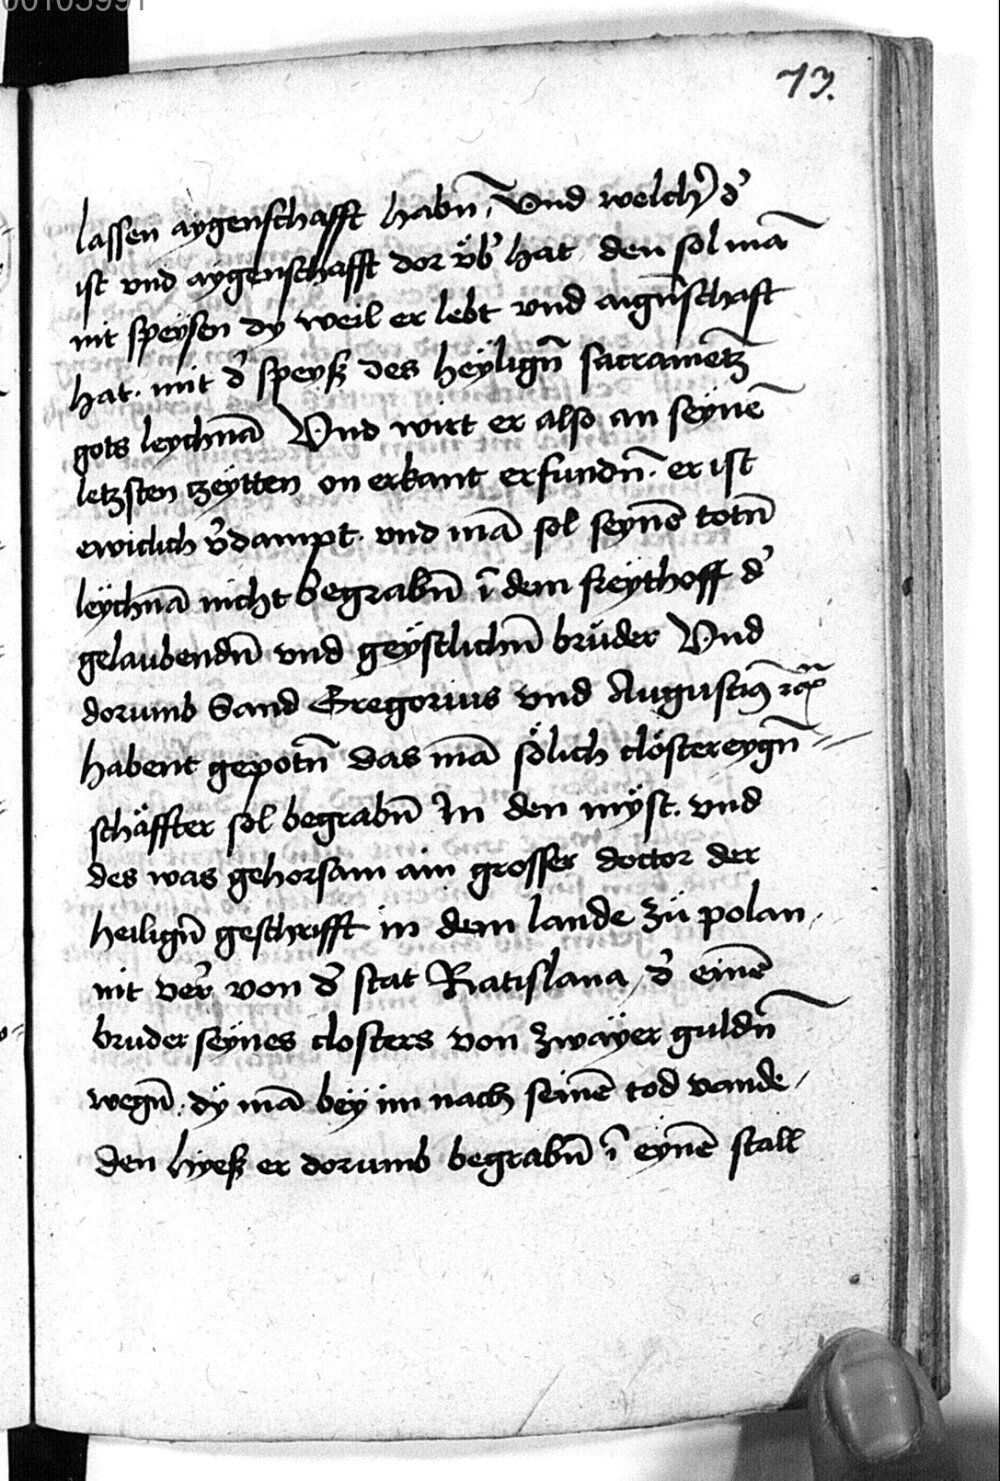 00105991
73.
lassen aygenschafft habn̄, Vnd welch᷑ d᷑
ist vnd aygenschafft dor vb᷑ hat den sol mā
nit speÿsen dy weil er lebt vnd aign̄schaft
hat. mit d᷑ speyß des heÿlign̄ sacramētz
gots leychnā Vnd wirt er also an seÿnē
letzsten tzeÿtten on erkant erfundn̄. er ist
ewiclich v᷑dampt. vnd mā sol seynē totn̄
leÿchnā nicht begrabn̄ ī dem freythoff d᷑
gelaubendn̄ vnd geÿstlichn̄ brüder Vnd
dorumb Sand Gregorius vnd Augustin9
habent gepotn̄ das mā sölich clöstereygn̄
schäffter sol begrabn̄ In den mÿst. vnd
des was gehorsam ain grosser doctor der
heilign̄ geschrifft in dem lande zü polan,
nit ver᷑ von d᷑ stat Ratislaua, d᷑ einē
bruder seÿnes closters von zwaÿer guldn̄
wegn̄. dÿ mā beÿ im nach seinē tod vande,
den hyeß er dorumb begrabn̄ ī eynē stall